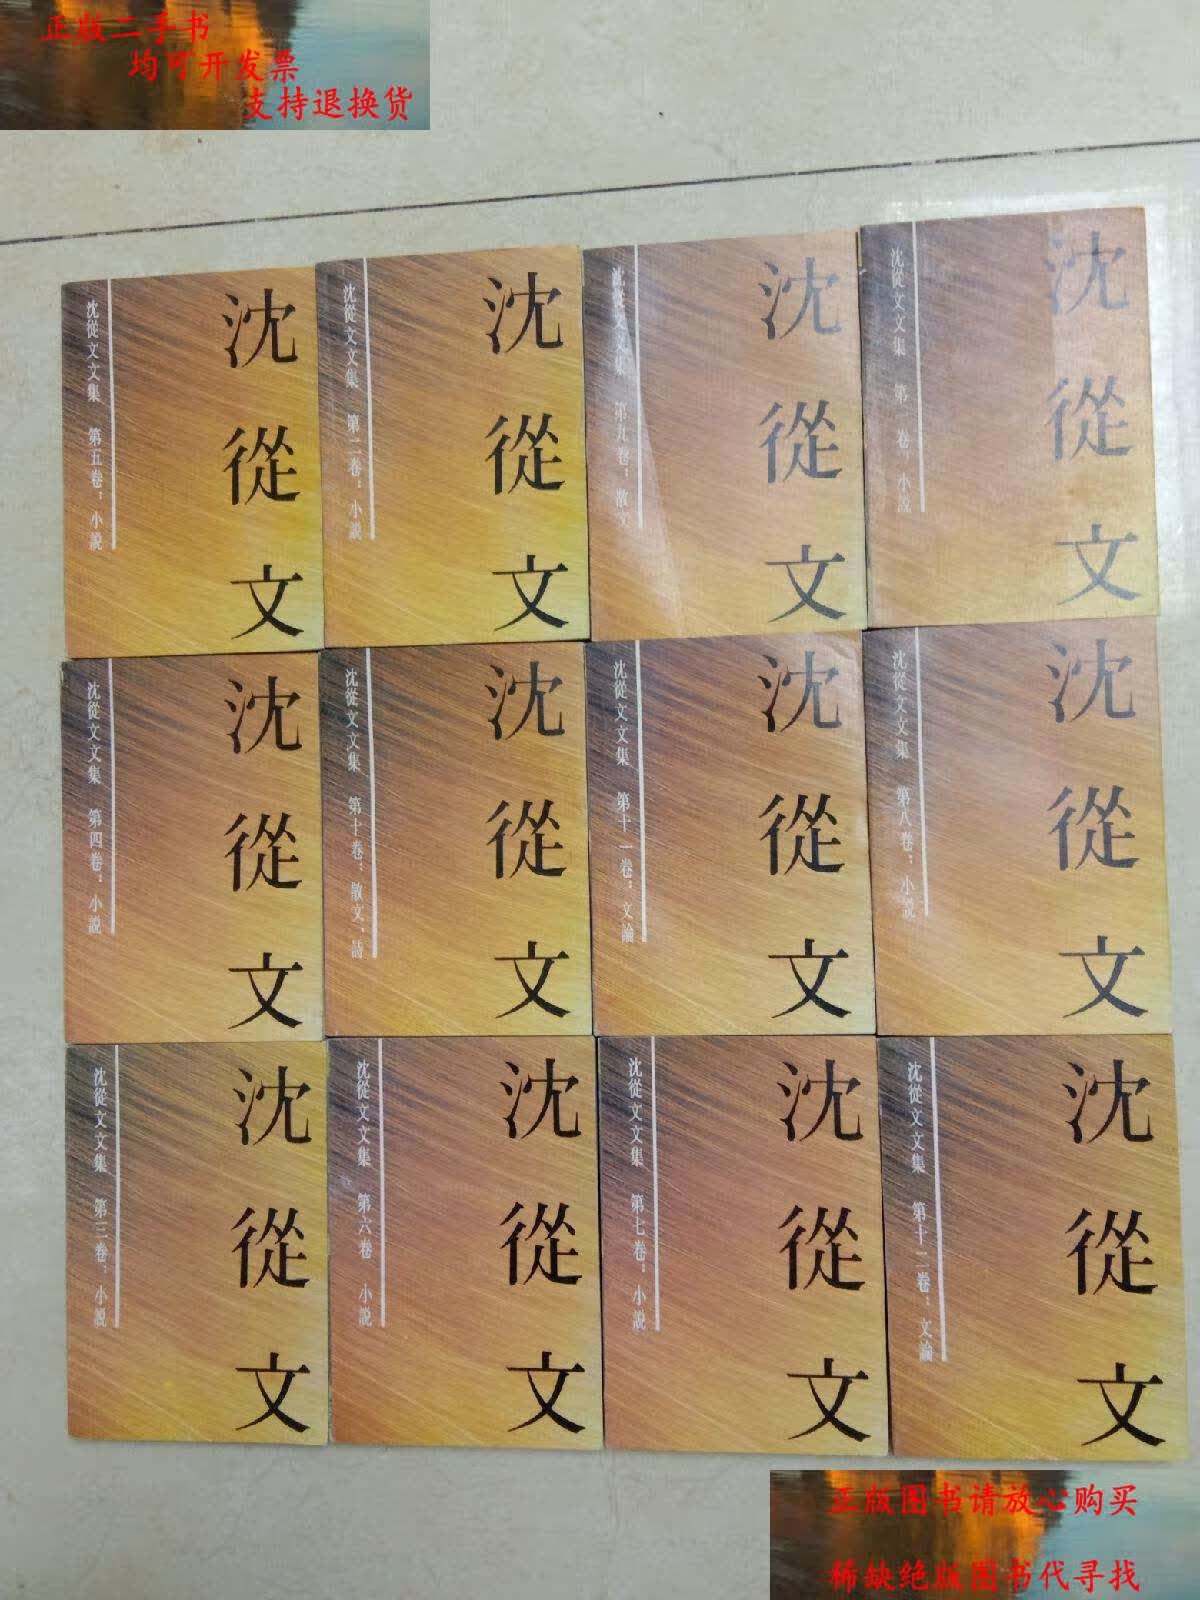 正版二手书
均可开发票
支持退换货
沈從文文集 第五卷：小說
沈從文
沈從文文集 第二卷：小說
沈從文
沈從文文集 第九卷：散文
沈從文
沈從文文集 第一卷 小說
沈從文
沈從文文集 第四卷：小說
沈從文
沈從文文集 第十卷：散文、詩
沈從文
沈從文文集 第十一卷：文論
沈從文
沈從文文集 第八卷：小說
沈從文
沈從文文集 第三卷：小說
沈從文
沈從文文集 第六卷 小說
沈從文
沈從文文集 第七卷：小說
沈從文
沈從文文集 第十二卷：文論
沈從文
正版图书请放心购买
稀缺绝版图书代寻找